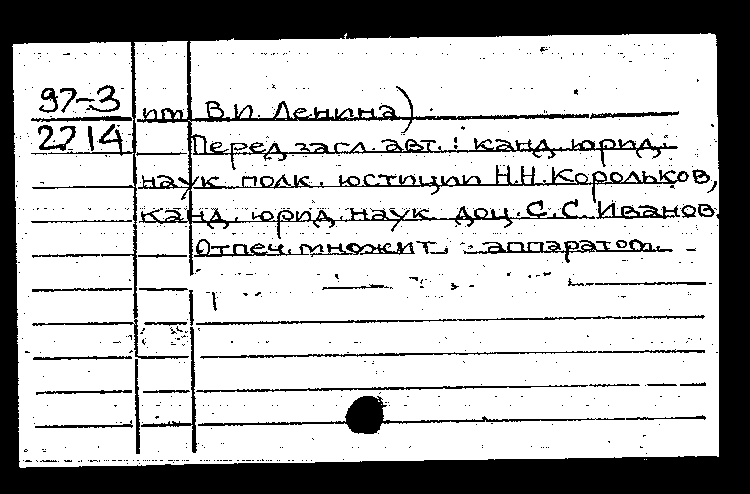 97-3
2214
им В.И. Ленина)
Перед загл. авт.: канд. юрид.
наук полк. юстиции Н.Н. Корольков,
канд. юрид. наук доц. С.С. Иванов.
Отпеч. множит. аппаратом.